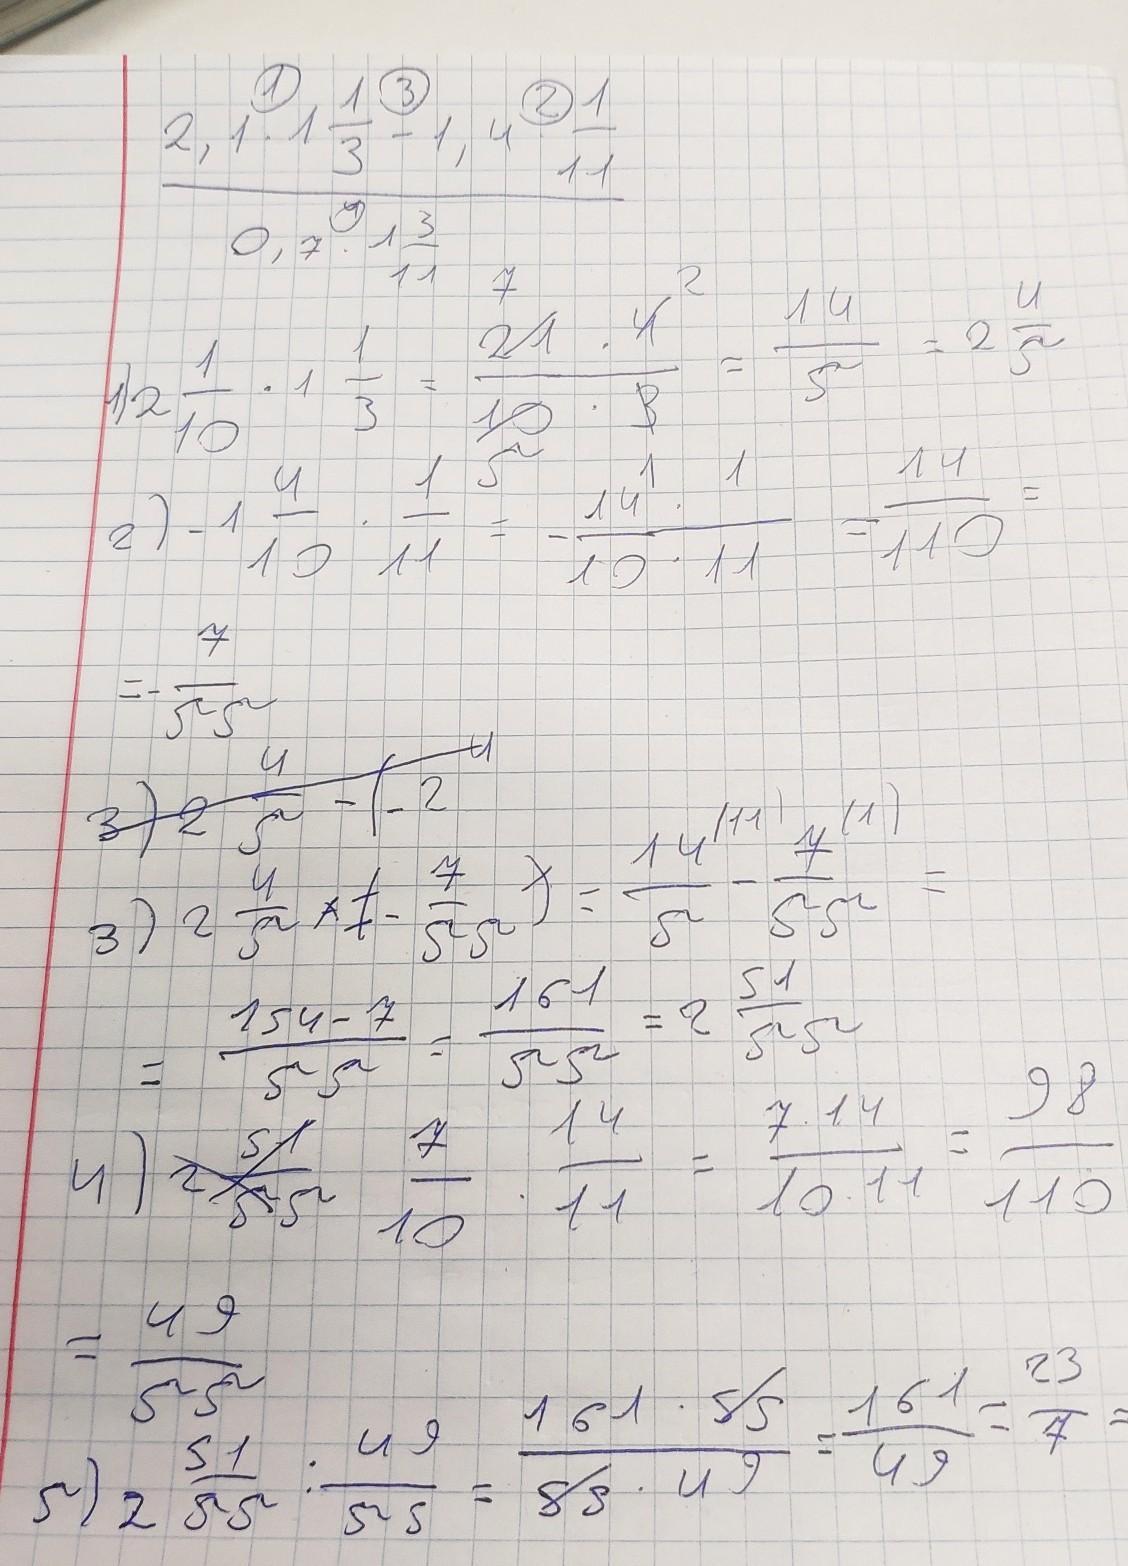 ① ③ ②
2,1 · 1 1/3 - 1,4 · 1/11
④
0,7 · 1 3/11
1) 2 1/10 · 1 1/3 = (21 · 4)/(10 · 3) = 14/5 = 2 4/5
7 2
5 1
2) -1 4/10 · 1/11 = -(14 · 1)/(10 · 11) = -14/110 =
= -7/55
3) 2 4/5 - (-2 4
3) 2 4/5 + (-7/55) = 14/5 (11) - 7/55 (1) =
= (154-7)/55 = 161/55 = 2 51/55
4) 2 51/55 7/10 · 14/11 = (7·14)/(10·11) = 98/110
= 49/55
5) 2 51/55 : 49/55 = (161 · 55)/(55 · 49) = 161/49 = 23/7 =